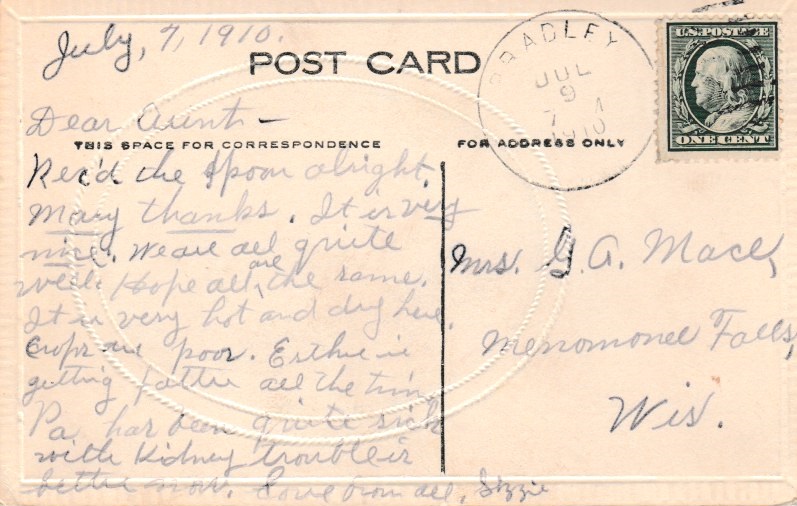 July, 7, 1910.
POST CARD
BRADLEY
JUL
9
7 A
1910
U.S. POSTAGE
ONE CENT
Dear Aunt —
THIS SPACE FOR CORRESPONDENCE
FOR ADDRESS ONLY
Rec'd the spoon alright.
Many thanks. It is very
nice. We are all quite
well. Hope all are the same.
It is very hot and dry here.
Crops are poor. Esther is
getting fatter all the time
Pa has been quite sick
with Kidney trouble is
better now. Love from all, Lizzie
Mrs. G. A. Mace,
Menomonee Falls,
Wis.